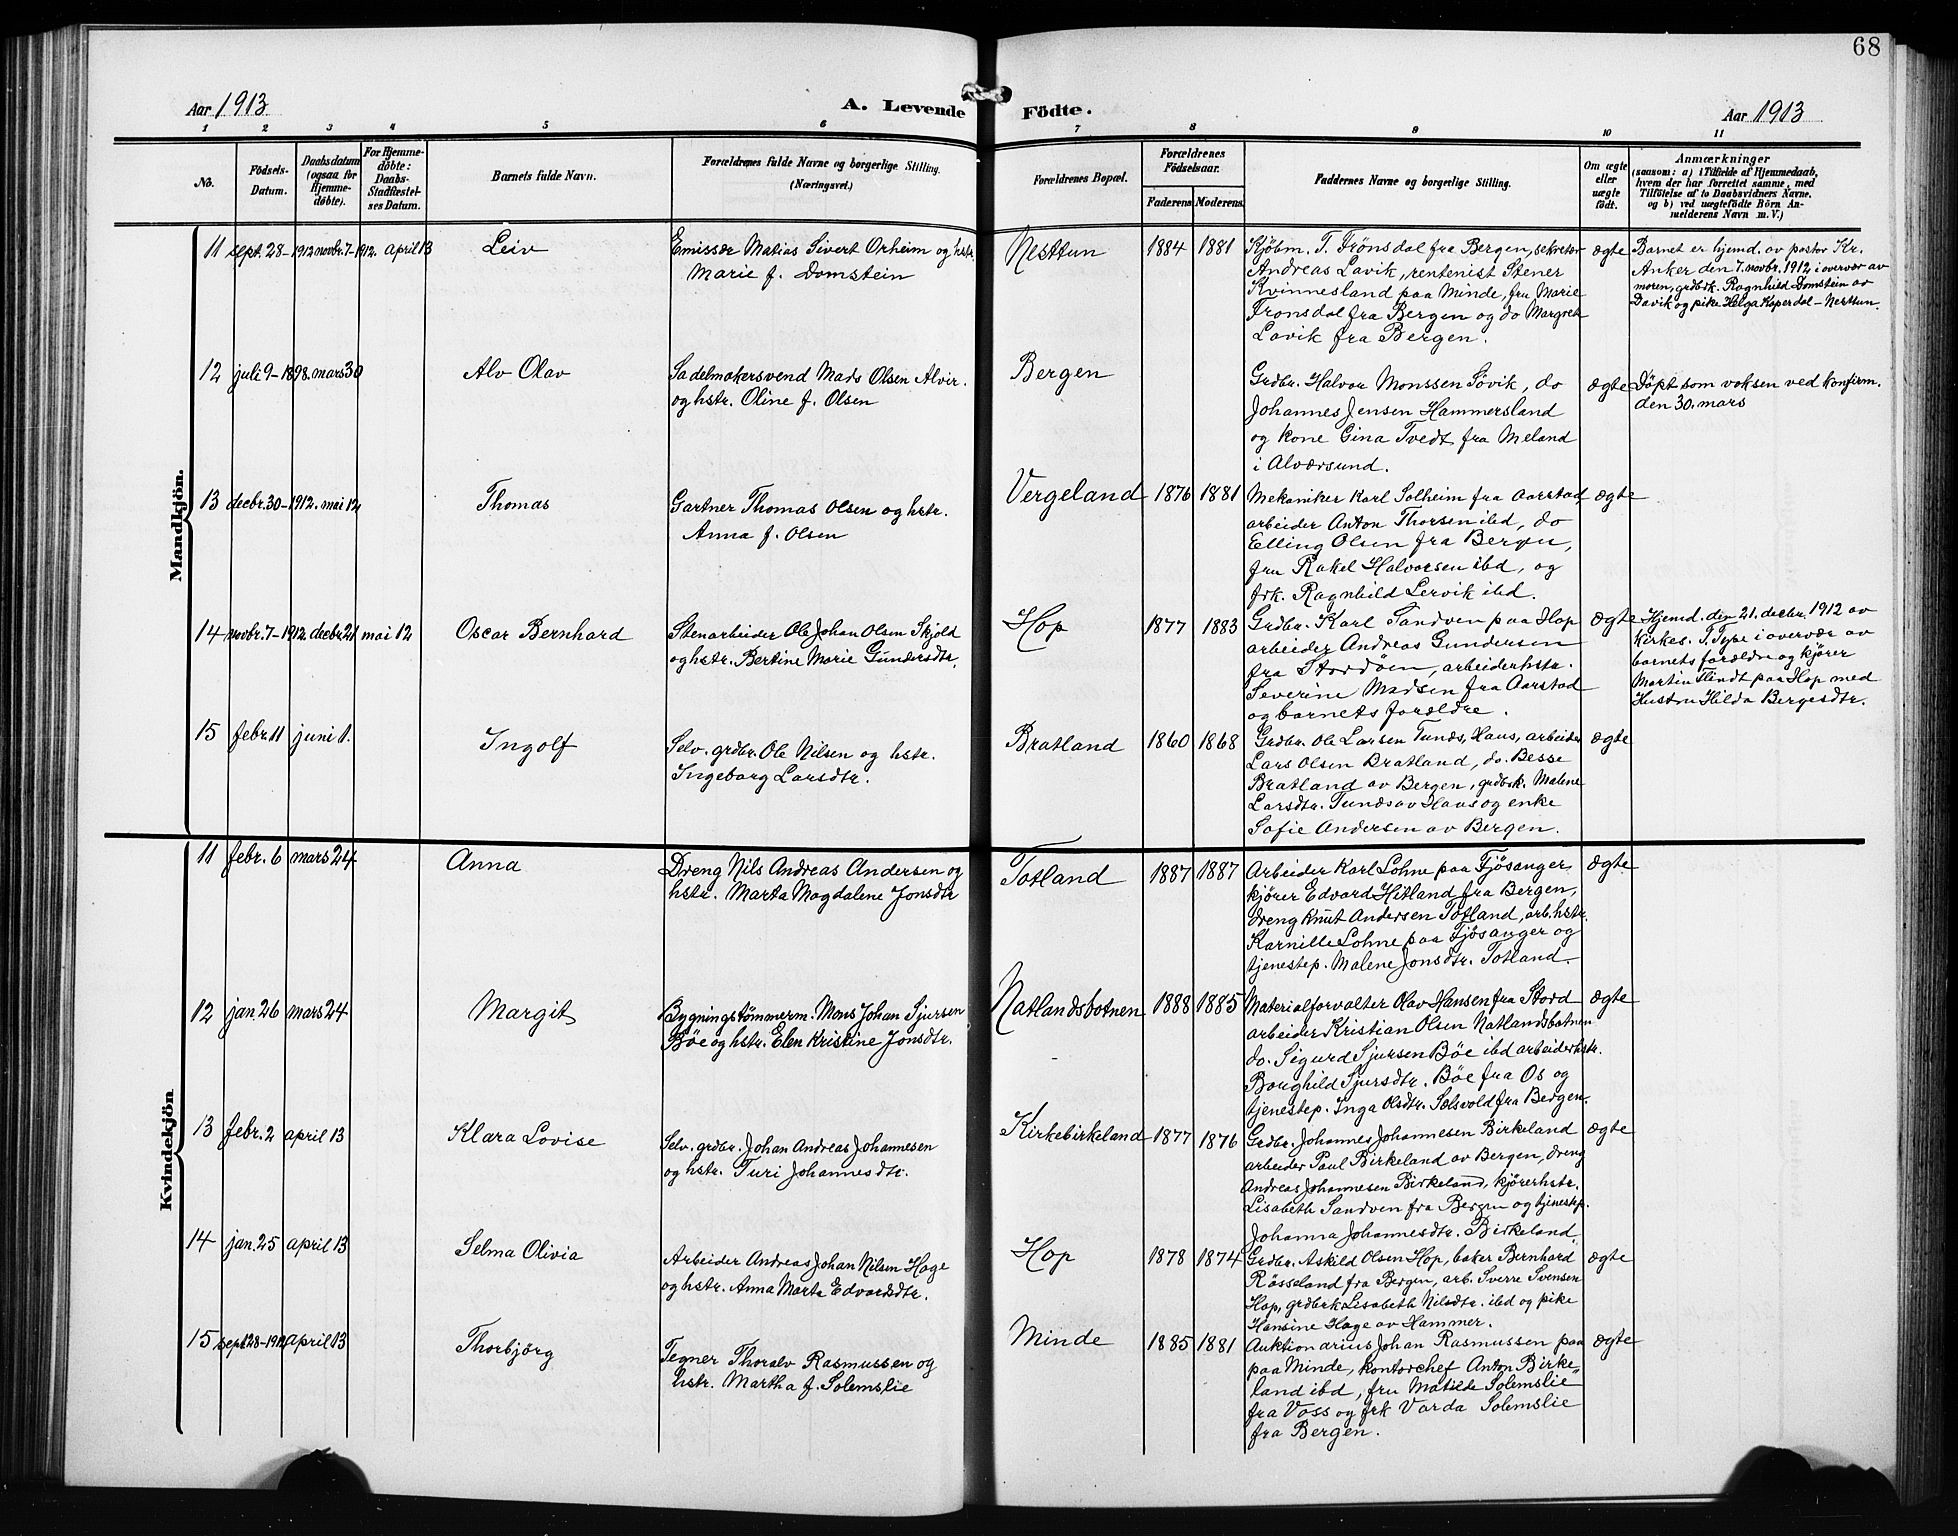 68
Aar 1913
A. Levende Födte.
Aar 1913
1 2 3 4 5 6 7 8 9 10 11
No.
Födsels-
Datum.
Daabsdatum
(ogsaa for
Hjemme-
döbte).
For Hjemme-
döbte:
Daabs-
Stadfæstel-
ses Datum.
Barnets fulde Navn.
Forældrenes fulde Navne og borgerlige Stilling.
(Næringsvei.)
Forældrenes Bopæl.
Forældrenes
Födselsaar.
Faderens Moderens
Faddernes Navne og borgerlige Stilling.
Om ægte
eller
uægte
födt.
Anmærkninger
(saasom: a) i Tilfælde af Hjemmedaab,
hvem der har forrettet samme, med
Tilföielse af to Daabsvidners Navne,
og b) ved uægtefödte Börn An-
melderens Navn m. V.)
Mandkjön.
11 sept. 28-1912 novbr. 7-1912. april 13
Leiv
Emissær Matias Sivert Orheim og hstr.
Marie f. Domstein
Nesttun
1884 1881
Kjöbm. T. Frönsdal fra Bergen, sekretær
Andreas Lavik, rentenist Stener
Kvinnesland paa Minde, fru Marie
Fronsdal fra Bergen og do Margret
Lavik fra Bergen.
ægte
Barnet er hjemd. av pastor Kr.
Anker den 7. novbr. 1912 i overvær av
moren, grdbrk. Ragnhild Domstein av
Davik og pike Helga Kaperdal - Nesttun.
12 juli 9-1898. mars 30
Alv Olav
Sadelmakersvend Mads Olsen Alvir.
og hstr. Oline f. Olsen
Bergen
Grdbr. Halvor Monssen Sövik, do
Johannes Jensen Hammersland
og kone Gina Tvedt fra Meland
i Alværsund.
ægte
Döpt som voksen ved konfirm.
den 30. mars
13 decbr. 30-1912. mai 12
Thomas
Gartner Thomas Olsen og hstr.
Anna f. Olsen
Vergeland
1876 1881
Mekaniker Karl Solheim fra Aarstad,
arbeider Anton Thorsen ibd, do
Elling Olsen fra Bergen,
fru Rakel Halvorsen ibd, og
frk. Ragnhild Lervik ibd.
ægte
14 novbr. 7-1912 decbr 21 mai 12
Oscar Bernhard
Stenarbeider Ole Johan Olsen Skjold
og hstr. Bertine Marie Gundersdtr.
Hop
1877 1883
Grdbr. Karl Sandven paa Hop
arbeider Andreas Gundersen
fra Stordöen, arbeiderhstr.
Severine Madsen fra Aarstad
og barnets forældre.
ægte
Hjemd. den 21. decbr. 1912 av
kirkes. T. Type i overvær av
barnets forældre og kjörer
Martin Flindt paa Hop med
Hustru Hilda Bergesdtr.
15 febr. 11 juni 1.
Ingolf
Selv. grdbr. Ole Nilsen og hstr.
Ingeborg Larsdtr.
Bratland
1860 1868
Grdbr. Ole Larsen Tunæs, Haus, arbeider
Lars Olsen Bratland, do. Besse
Bratland av Bergen, grdbrk. Malene
Larsdtr. Tunæs av Haus og enke
Sofie Andersen av Bergen.
ægte
Kvindekjön
11 febr. 6 mars 24
Anna
Dreng Nils Andreas Andersen og
hstr. Marta Magdalene Jonsdtr
Totland
1887 1887
Arbeider Karl Lohne paa Fjösanger
kjörer Edvard Hitland fra Bergen,
dreng Knut Andersen Totland, arb. hstr.
Karnille Lohne paa Fjösanger og
tjenestep. Malene Jonsdtr. Totland.
ægte
12 jan. 26 mars 24
Margit
Bygningstömmerm. Mons Johan Sjursen
Böe og hstr. Elen Kristine Jonsdtr.
Natlandsbotnen
1888 1885
Materialforvalter Olav Hansen fra Stord
arbeider Kristian Olsen Natlandsbotnen
do. Sigurd Sjursen Böe ibd arbeiderhstr.
Borghild Sjursdtr. Böe fra Os og
tjenestep. Inga Olsdtr. Sælsvold fra Bergen.
ægte
13 febr. 2 april 13
Klara Lovise
Selv. grdbr. Johan Andreas Johannesen
og hstr. Turi Johannesdtr.
Kirkebirkeland
1877 1876
Grdbr. Johannes Johannesen Birkeland
arbeider Paul Birkeland av Bergen, dreng
Andreas Johannesen Birkeland, kjörerhstr.
Lisabeth Sandven fra Bergen og tjenestep.
Johanna Johannesdtr. Birkeland.
ægte
14 jan. 25 april 13
Selma Olivia
Arbeider Andreas Johan Nilsen Hage
og hstr. Anna Marta Edvardsdtr.
Hop
1878 1874
Grdbr. Askild Olsen Hop, baker Bernhard
Rösseland fra Bergen, arb. Sverre Svensen
Hop, grdbrk Lisabeth Nilsdtr. ibd og pike
Hansine Hage av Hammer.
ægte
15 sept 28-1912 april 13
Thorbjörg
Tegner Thoralv Rasmussen og
hstr. Martha f. Solemslie
Minde
1885 1881
Auktionarius Johan Rasmussen paa
paa Minde, kontorchef Anton Birke-
land ibd, fru Matilde Solemslie
fra Voss og frk Varda Solemslie
fra Bergen.
ægte